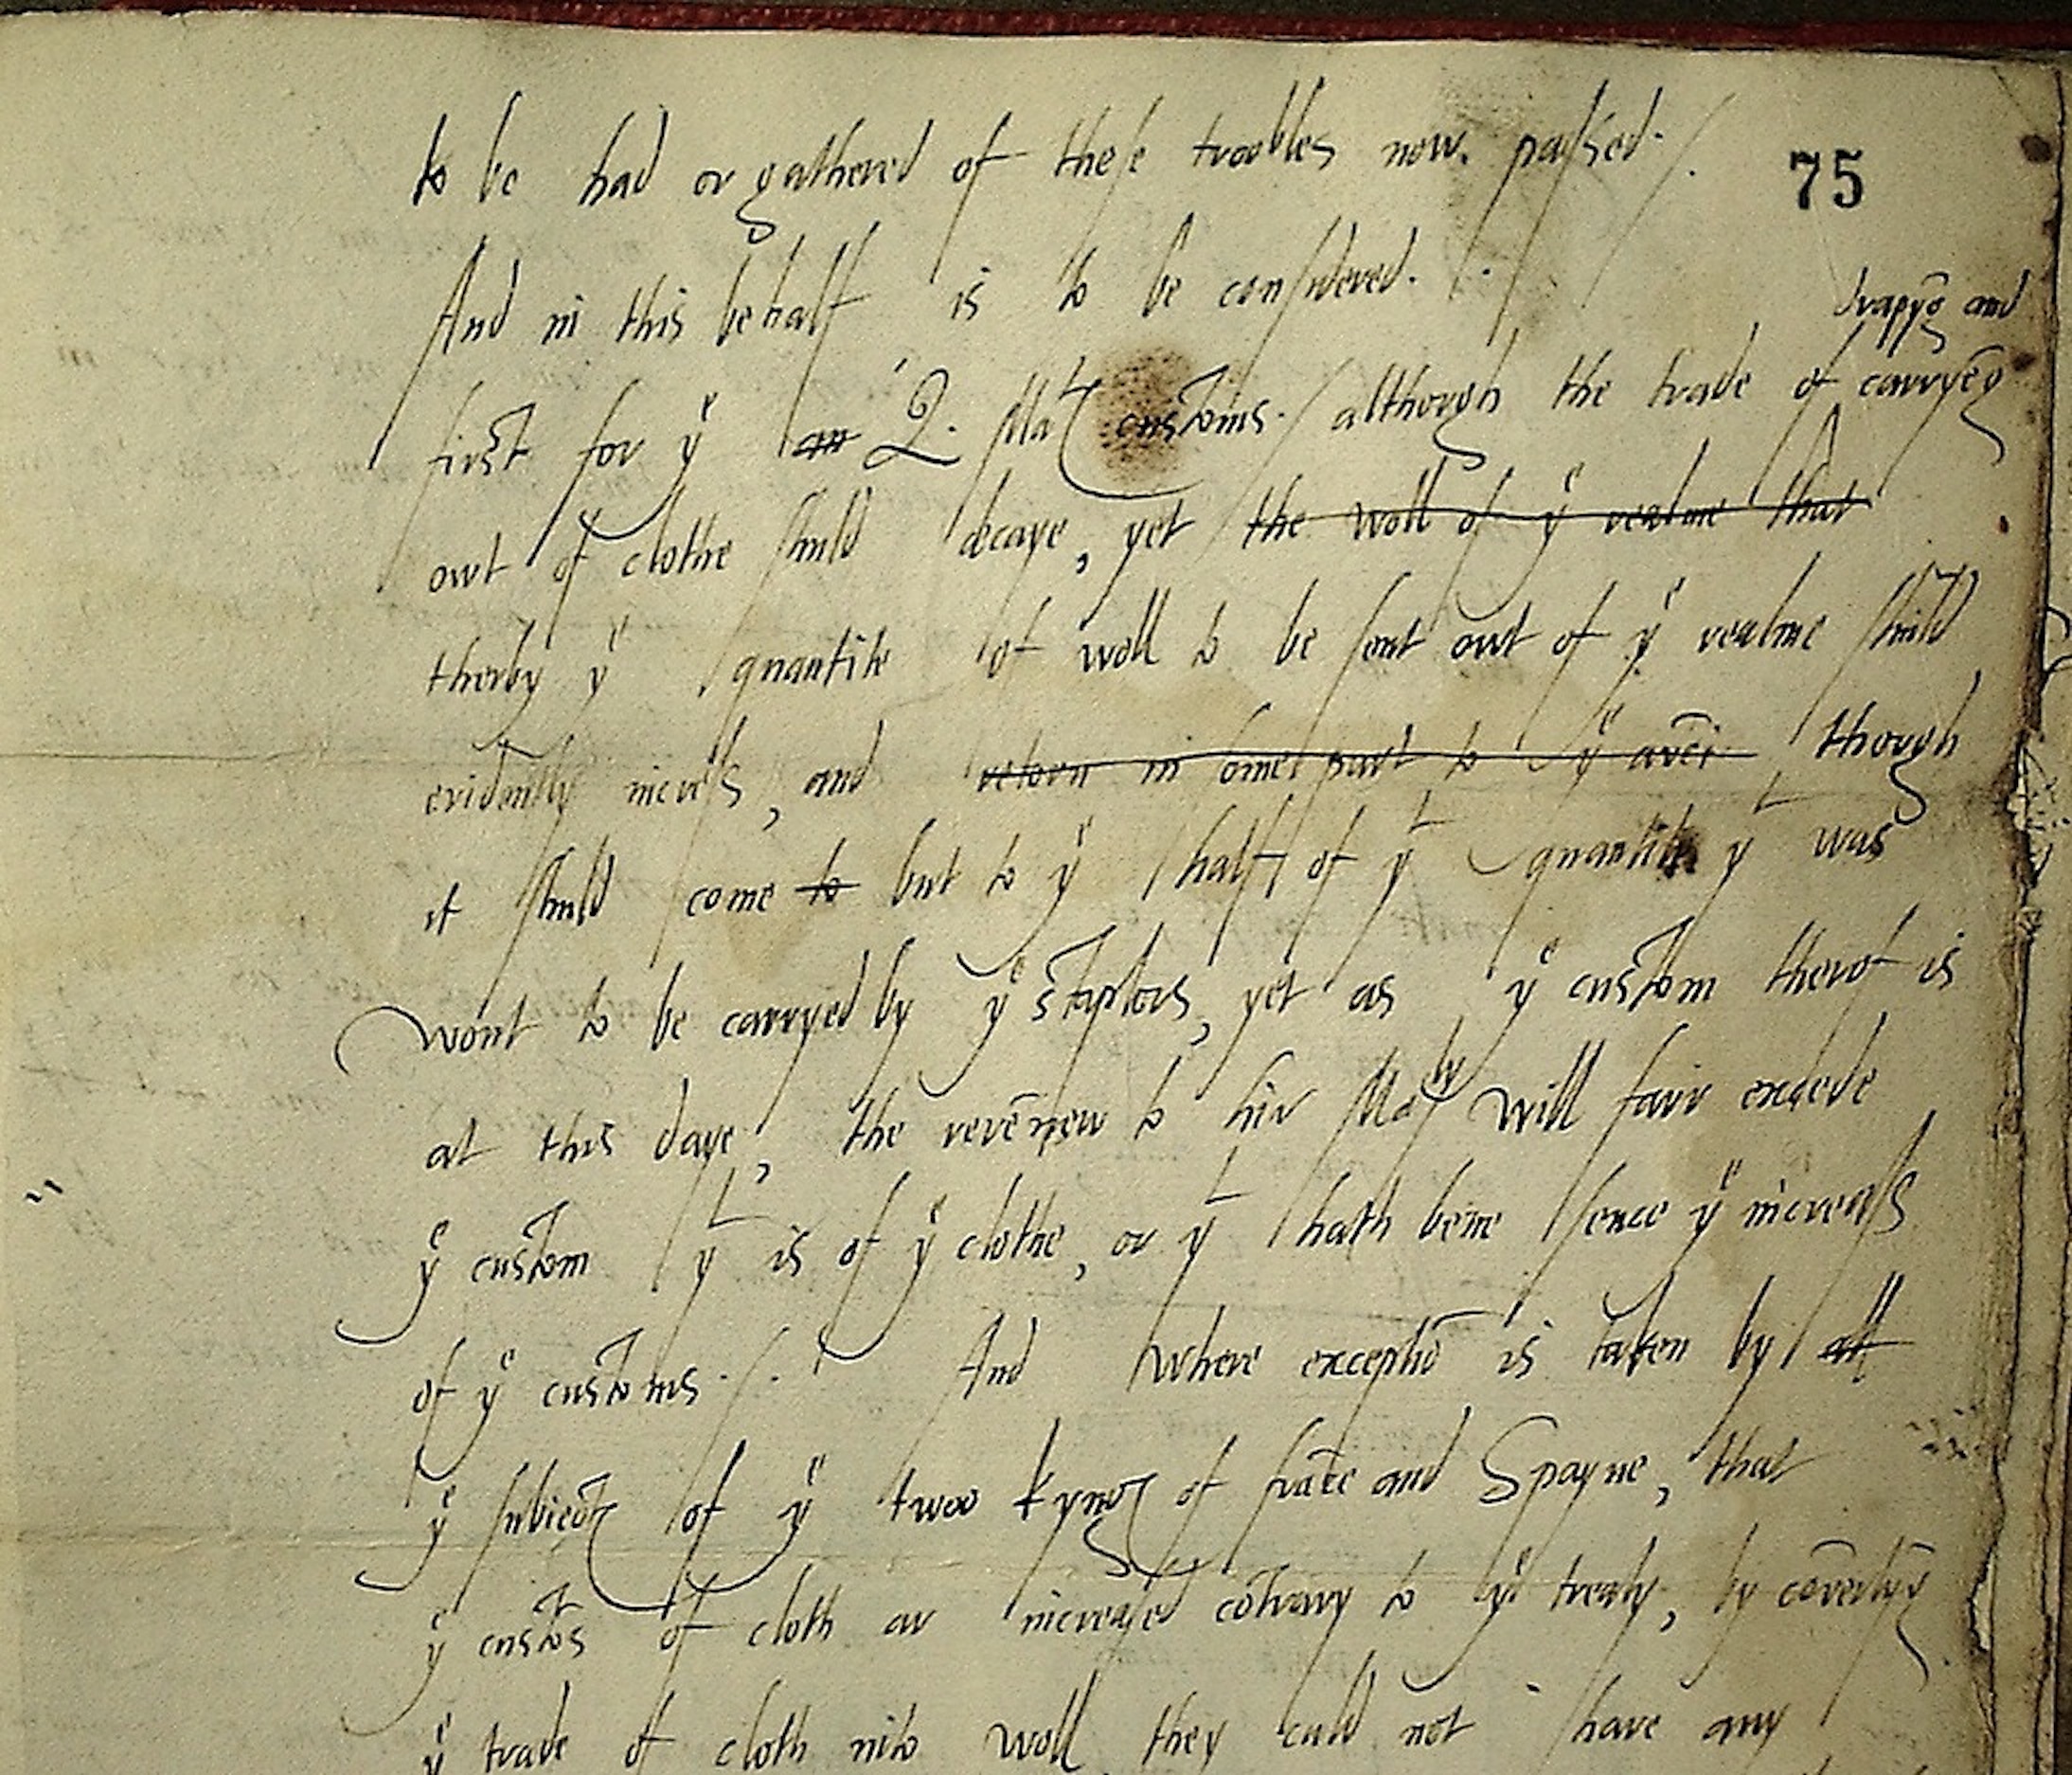 to be had or gathered of these troobles now. passed./.
75
And in this behalf is to be consydered./.
drappyg and
first for yͤ an Q. Matꝭ customs./ although the trade of carryēg
owt of clothe shuld decaye, yet the woll of yͤ realme that
therby yͤ quantite of woll to be sent owt of yͤ realme shuld
evidently incress, and retorn in some part to yͤ though
it shuld come to but to yͤ half of yᵗ quantite yᵗ was
wont to be carryed by yͤ staplors, yet as yͤ custom therof is
at this daye, the revēnew to hir Maᵗʸ will farr excede
yͤ custom yᵗ is of yͤ clothe, or yᵗ hath bene sence yͤ increass
of yͤ customs./. And where exceptiō is taken by all
yͤ subiectꝭ of yͤ twoo kyngꝭ of frāce and Spayne, that
yͤ custōs of cloth ar increased cōtrary to yͤ treaty, by cōvertyg
yͤ trade of cloth into woll they cold not have any